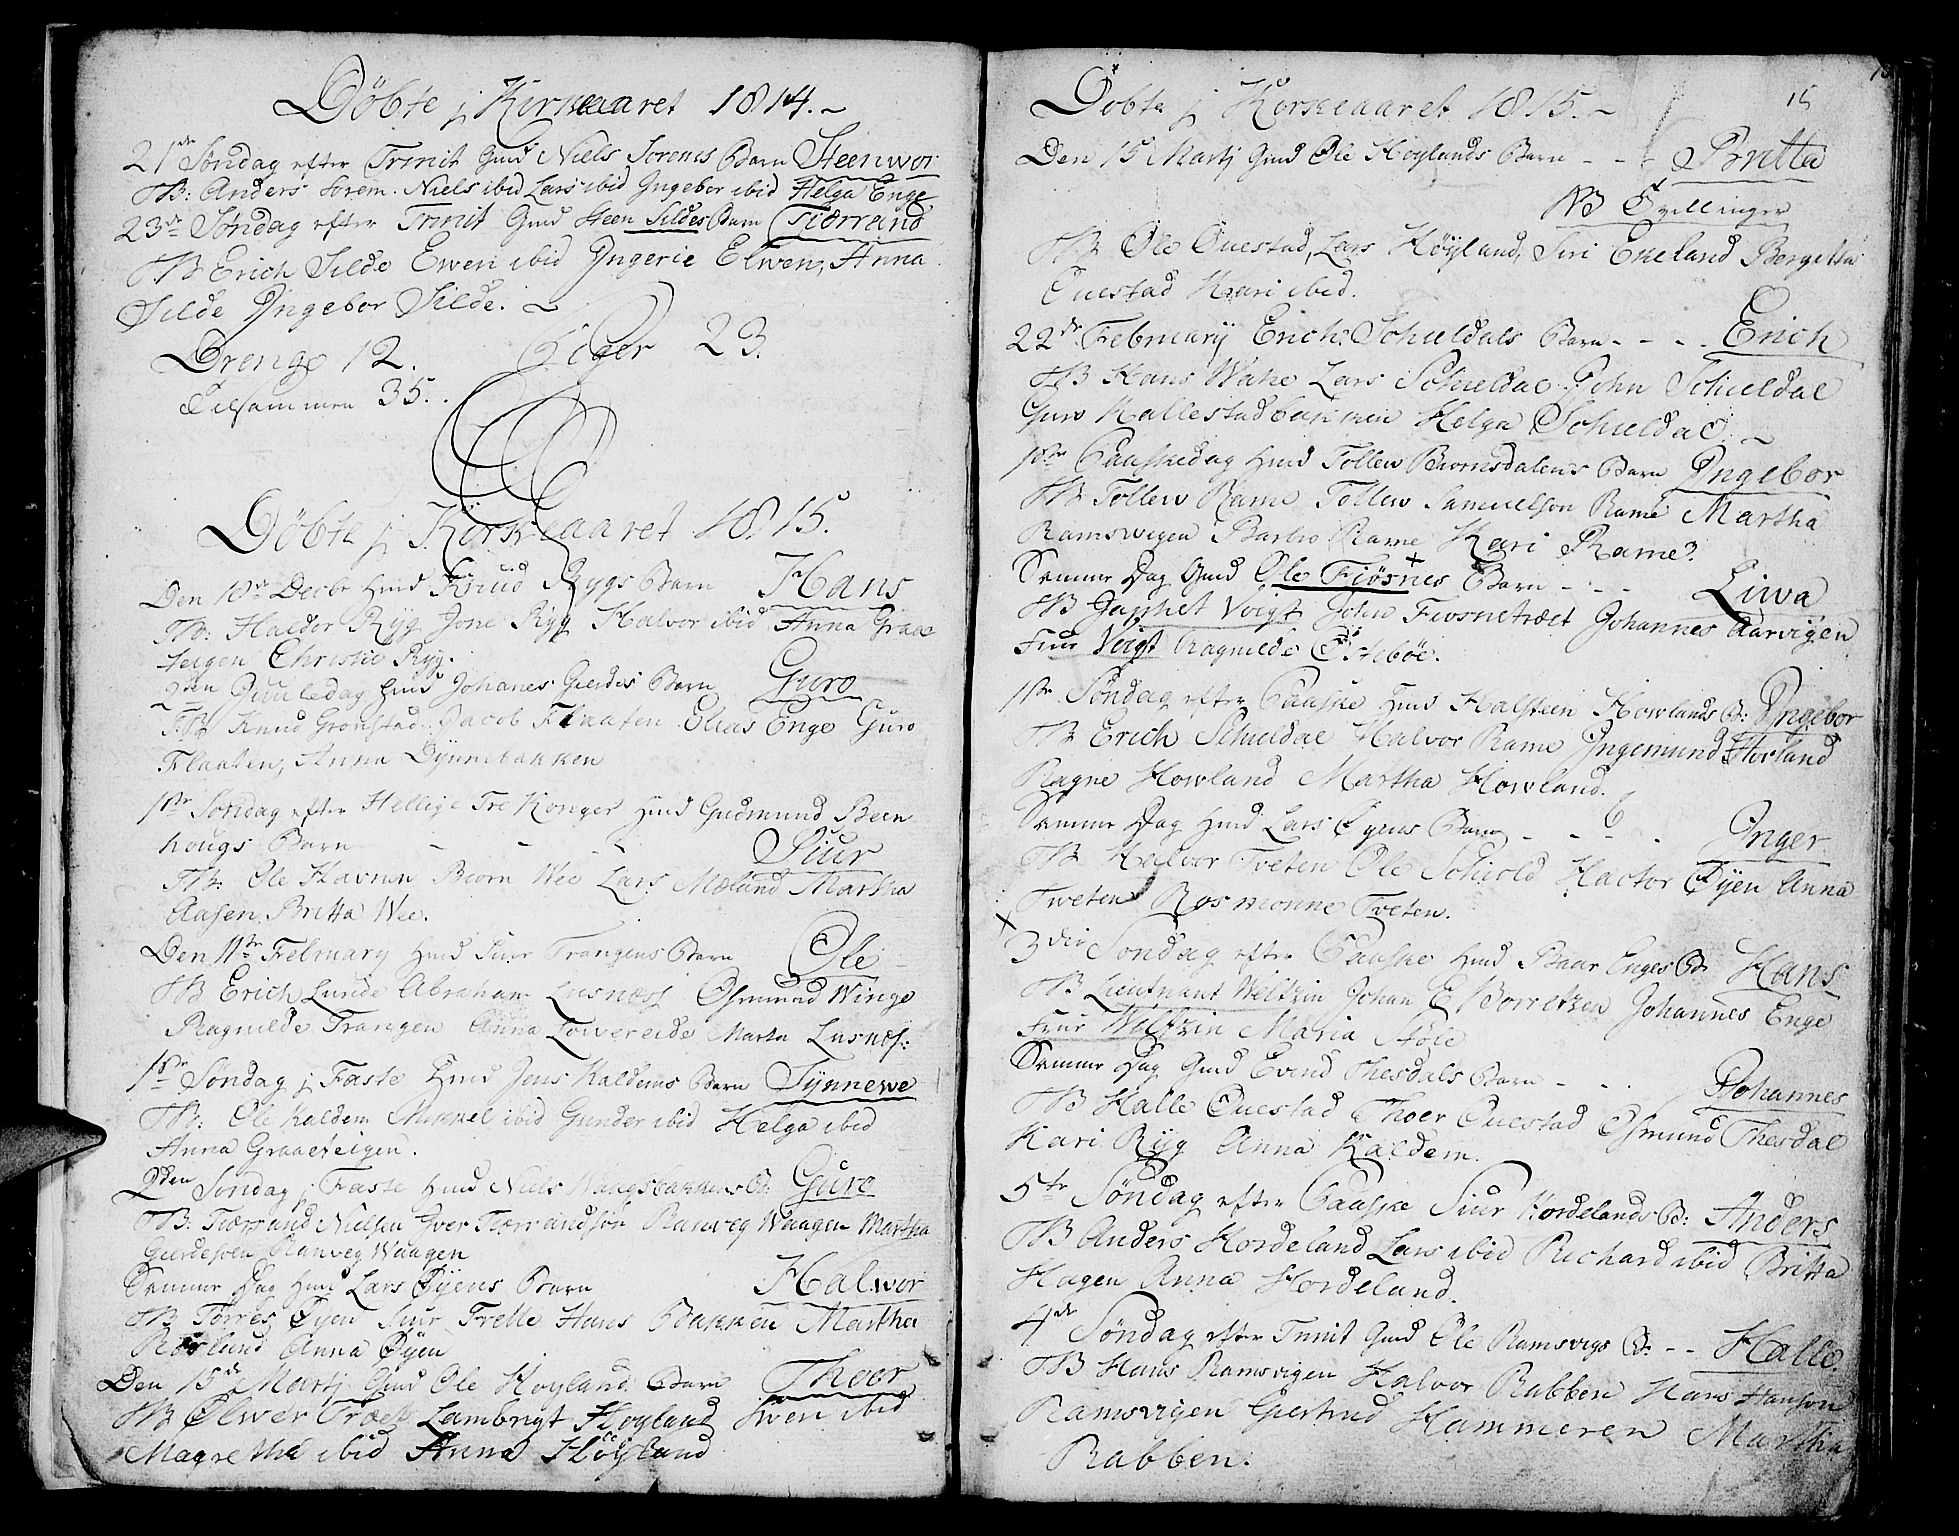 Döbte j Kirkeaaret 1814.~
21de Söndag efter Trinit Niels Sorenes Barn Steenwor
TB: Anders Sorem. Niels ibid Lars ibid Yngebor ibid Helga Enge
23de Söndag efter Trinit Steen Sildes Barn Tiærrand
TB Erich Silde Ewen ibid Yngerie Elwen, Anna
Silde Yngebor Silde. ~
Drenge 12. Piger 23.
Tilsammen 35.
Döbte j Körkeaaret 1815.
Den 18de Decbr Knud Rygs Barn Hans
TB: Haldor Ryg Jone Ryg Halvor ibid Anna Graae
teigen Christie Ryg.
2den Juuledag Johanes Gierdes Barn Guro
TB Knud Gronstad. Jacob Flaaten Elias Enge Guro
Flaaten, Anna Dynnebakken
1ste Söndag efter Hellige Tre Konger Gudmund Been
hougs Barn - - - Siur
TB: Ole Havnen Biorn Wee Lars Mæland Martha
Aasen, Britta Wee.
Den 11te February Siur Trangens Barn Ole
TB Erich Lunde Abraham Lusness Osmund Winge
Ragnilde Trangen Anna Lowereide Marta Lusnes:
1ste Söndag j Faste Jens Kaldems Barn Synnewe
TB: Ole Kaldem Mikkel ibid Gunder ibid Helga ibid
Anna Graaeteigen.
2den Söndag j Faste Niels Waagsbakkens B: Guro
TB: Tiærrand Nielsen Iver Tiærrandsön Ranveg Waagen Martha
Ranveg Waagen
Samme Dag Lars Öyens Barn Halwor
TB Torres Öyen Siur Frette Hans Bakken Martha
Röslund Anna Öyen
Den 15de Martj Ole Höyland Barn Thoor
TB Elwer Træet Lambrigt Höyland Swen ibid
Magretha ibid Anna Höyland
15
Döbte j Körkeaaret 1815.~
Den 15 Martj Ole Höylands Barn - - - Britta
NB Tvillinger
TB Ole Öuestad, Lars Höyland, Siri Ekeland Bergitta
Öuestad Kari ibid.
22de February Erich Schueldals Barn - - - Erich
TB Hans Wake Lars Schueldal John Schueldal
Guro Hallestadbakken Helga Schueldal. ~
1ste Paaskedag Tollew Biornsdalens Barn Yngebor
TB Tollew Rame Tollew Samuelson Rame Martha
Ramswigen Barbro Rame Kari Rame.
Samme Dag Ole Fiösnes Barn - - - Liwa
TB Japhet Voigt John Fiosnetræet Johannes Aarvigen
Frue Voigt Ragnilde Östebøe.
1ste Söndag efter Paaske Halsteen Howlands B: Yngebor
TB Erich Schueldal Halvor Rame Yngemund Howland
Ragne Howland Martha Howland.
Samme Dag Lars Öyens Barn - - - Ynger
TB Halvor Tveten Ole Schiold Hactor Öyen Anna
Tveten Rosmonne Tveten.
3die Söndag efter Paaske Baar Enges B: Hans
TB Lieutnant Weltzin Johan E Borretzen Johannes Enge
Frue Weltzin Maria Støle
Samme Dag Evind Thesdals Barn - - - Johannes
TB Halle Öuestad Thoer Öuestad Osmund Thesdal
Kari Ryg Anna Kaldem.
5te Söndag efter Paaske Siur Hordelands B: Anders
TB Anders Hordeland Lars ibid Richard ibid Britta
Hagen Anna Hordeland.
4de Söndag efter Trinit Ole Ramsvigs B: -- Halle.
TB Hans Ramsvigen Halvor Rabben Hans Hanson
Ramsvigen Giertrud Hammeren Martha
Rabben.